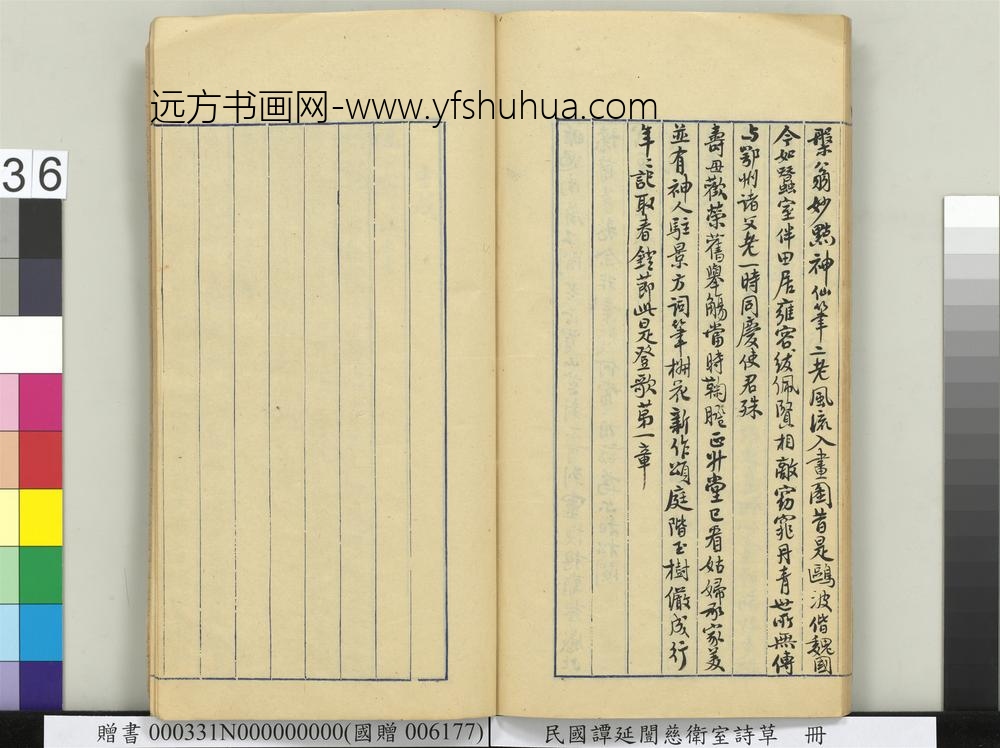 远方书画网-www.yfshuhua.com
36
槃翁妙點神仙筆二老風流入畫圖昔是鷗波偕魏國
今如蠶室伴田居雍容紱佩賢相敵窈窕丹青世所無傳
与鄂州諸父老一時同慶使君殊
壽母歡榮舊舉觴當時鞠𦜕正升堂已看姑婦承家美
並有神人駐景方詞筆椒花新作頌庭階玉樹儼成行
年〻記取春鐙節此是登歌第一章
贈書 000331N000000000(國贈 006177)
民國譚延闓慈衛室詩草 冊